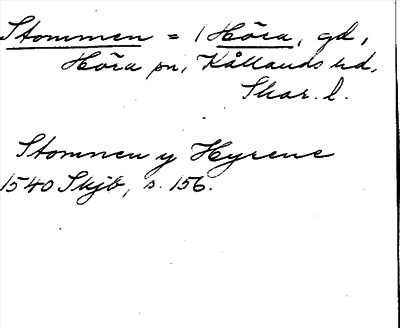 Stommen = 1 Höra, gd,
Höra sn, Kållands hd,
Skar. l.
Stomnen y Hyrene
1540 Skjb, s. 156.